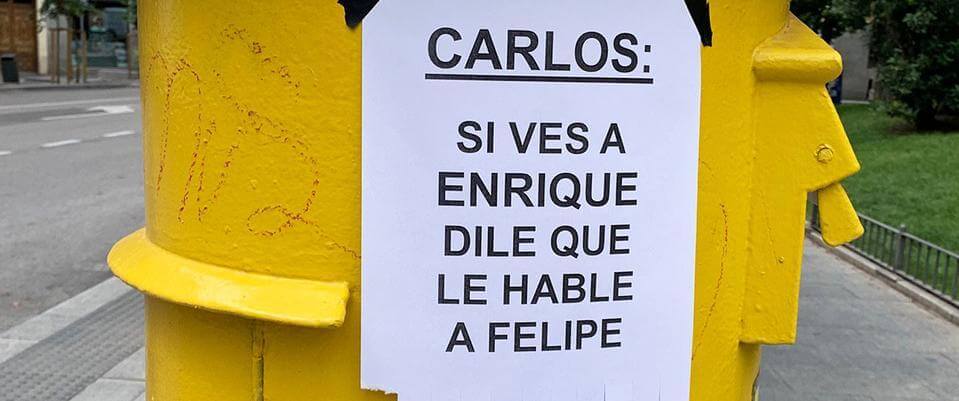 CARLOS:
SI VES A
ENRIQUE
DILE QUE
LE HABLE
A FELIPE